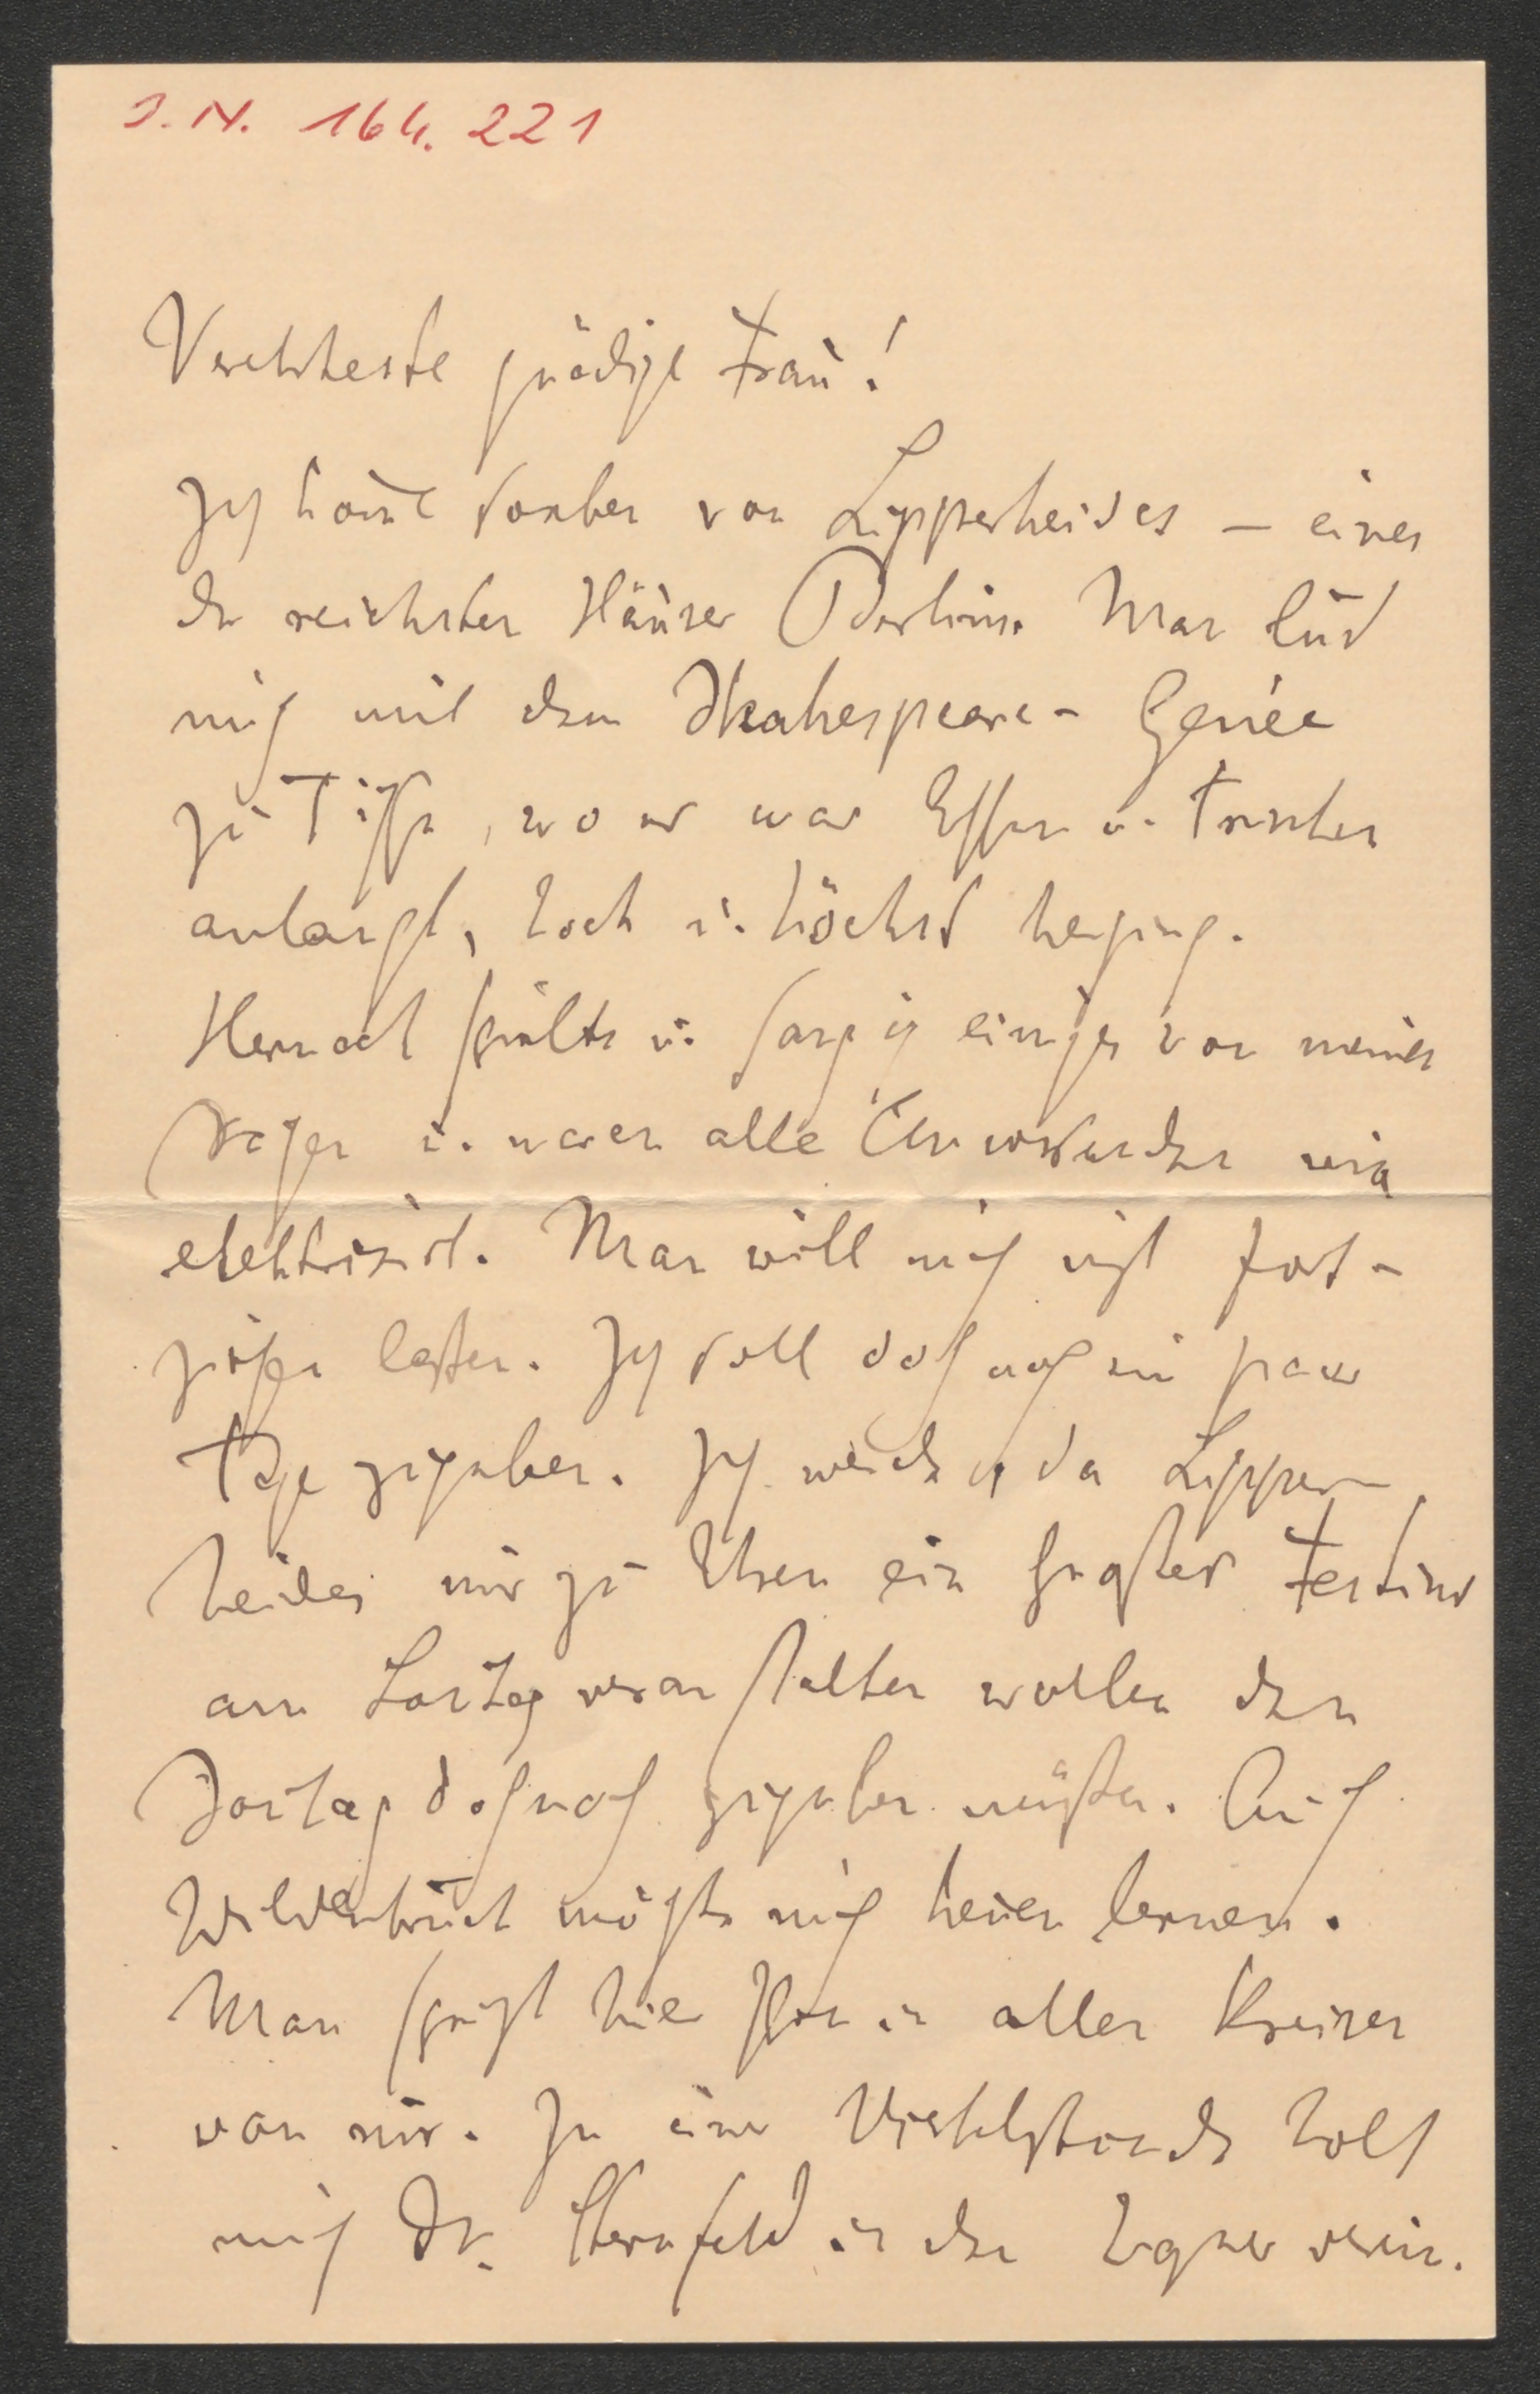 I.N. 164.221
Verehrteste gnädige Frau!
Ich kom̅e soeben von Lipperheides – eines
der reichsten Häuser Berlins. Man lud
mich mit dem Shakespeare- Genée
zu Tisch, wo es was Essen u. Trinken
anlangt, hoch u. höchst herging.
Hernach spielte u. sang ich einiges von meinen
Sachen u. waren alle Anwesenden wie
elektrisirt. Man will mich nicht fort-
ziehen lassen. Ich soll doch noch ein paar
Tage zugeben. Ich werde es, da Lipper-
heides mir zu Ehren ein großes Festin
am Sonntag veranstalten wollen den
Sonntag doch noch zugeben müssen. Auch
Wildenbruch möchte mich ken̅en lernen.
Man spricht hier schon in allen Kreisen
von mir. In einer Viertelstunde holt
mich Dr. Sternfeld in den Wagnerverein.